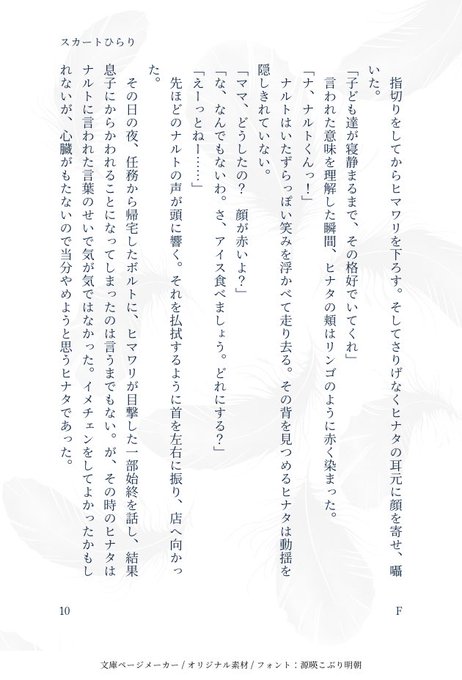 スカートひらり
　指切りをしてからヒマワリを下ろす。そしてさりげなくヒナタの耳元に顔を寄せ、囁
いた。
「子ども達が寝静まるまで、その格好でいてくれ」
　言われた意味を理解した瞬間、ヒナタの頬はリンゴのように赤く染まった。
「ナ、ナルトくんっ！」
　ナルトはいたずらっぽい笑みを浮かべて走り去る。その背を見つめるヒナタは動揺を
隠しきれていない。
「ママ、どうしたの？　顔が赤いよ？」
「な、なんでもないわ。さ、アイス食べましょう。どれにする？」
「えーっとねー……」
　先ほどのナルトの声が頭に響く。それを払拭するように首を左右に振り、店へ向かっ
た。
　その日の夜、任務から帰宅したボルトに、ヒマワリが目撃した一部始終を話し、結果
息子にからかわれることになってしまったのは言うまでもない。が、その時のヒナタは
ナルトに言われた言葉のせいで気が気ではなかった。イメチェンをしてよかったかもし
れないが、心臓がもたないので当分やめようと思うヒナタであった。
F
10
文庫ページメーカー / オリジナル素材 / フォント：源暎こぶり明朝